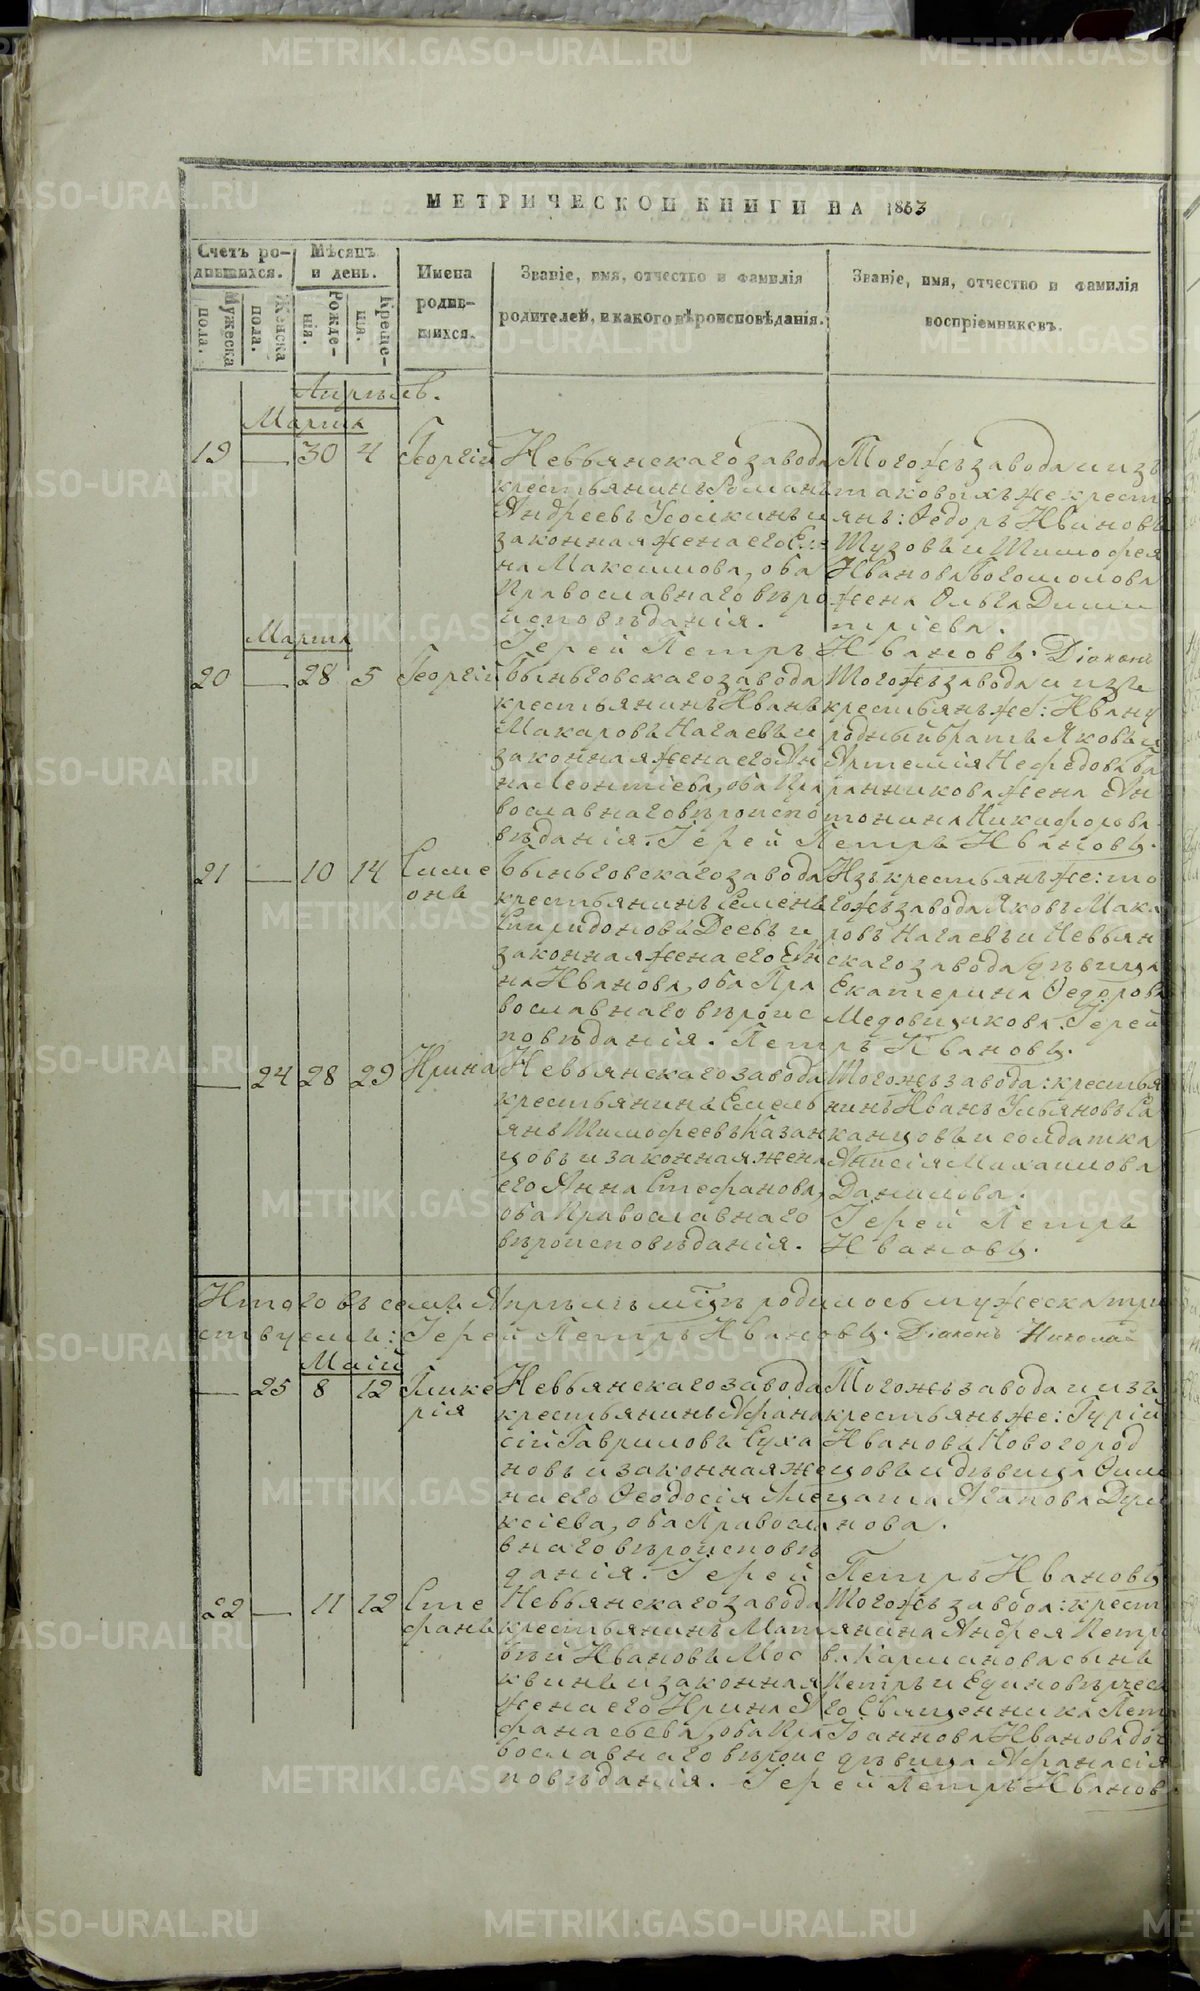 МЕТРИЧЕСКОЙ КНИГИ НА 1863
Счетъ ро-
дившихся.
Мѣсяцъ
и день.
Имена
родив-
шихся.
Званіе, имя, отчество и фамилія
родителей, и какого вѣроисповѣданія.
Званіе, имя, отчество и фамилія
воспріемниковъ.
Мужеска
пола.
Женска
пола.
Рожде-
нія.
Креще-
нія.
Апрѣль.
Марта
19 — 30 4 Георгій
Невьянскаго завода
крестьянинъ Романъ
Андреевъ Усолкинъ и
законная жена его Еле
на Максимова, оба
Православнаго вѣро
исповѣданія.
Тогожъ завода и изъ
таковыхъ же кресть
янъ: Ѳедоръ Ивановъ
Шузовъ и Тимофея
Иванова Богомолова
жена Ольга Дими
тріева.
Іерей Петръ Ивановъ. Діаконъ
Марта
20 — 28 5 Георгій
Быньговскаго завода
крестьянинъ Иванъ
Макаровъ Нагаевъ и
законная жена его Ан
на Леонтіева, оба Пра
вославнаго вѣроиспо
вѣданія. Іерей Петръ Ивановъ.
Тогожъ завода и изъ
крестьянъ же: Ивану
родный братъ Яковъ и
Артемія Нефедова Ба
ранникова жена Ан
тонина Никифорова.
21 — 10 14 Симе
онъ
Быньговскаго завода
крестьянинъ Семенъ
Спиридоновъ Деевъ и
законная жена его Ан
на Иванова, оба Пра
вославнаго вѣроис
повѣданія. Петръ Ивановъ.
Изъ крестьянъ же: то
гожъ завода Яковъ Мака
ровъ Нагаевъ и Невьян
скаго завода дѣвица
Екатерина Ѳедорова
Медовщикова. Іерей
— 24 28 29 Ирина
Невьянскаго завода
крестьянинъ Емель
янъ Тимофеевъ Казан
цовъ и законная жена
его Анна Стефанова,
оба Православнаго
вѣроисповѣданія.
Тогожъ завода: крестья
нинъ Иванъ Ульяновъ Ка
занцовъ и солдатка
Анисія Михаилова
Данилова.
Іерей Петръ
Ивановъ.
Итого въ семъ Апрѣлѣ мѣсяцѣ родилось мужеска три
Іерей Петръ Ивановъ. Діаконъ Николай
Маій
— 25 8 12 Глике
рія
Невьянскаго завода
крестьянинъ Афана
сій Гавриловъ Суха
новъ и законная же
на его Ѳеодосія Але
ксіева, оба Правосла
внаго вѣроисповѣ
данія. Іерей Петръ Ивановъ
Тогожъ завода и изъ
крестьянъ же: Гурій
Ивановъ Новогород
цовъ и дѣвица
Агапова
нова.
22 — 11 12 Сте
фанъ
Невьянскаго завода
крестьянинъ Мат
вѣй Ивановъ Мос
квинъ и законная
жена его Ирина А
фанасьева, оба Пра
вославнаго вѣроис
повѣданія. Іерей Петръ Ивановъ
Тогожъ завода: крест
янина Андрея Петро
ва Карманова сынъ
Петръ и Единовѣрческ
го Священника Петра
Іоаннова Иванова доч
дѣвица Афанасія